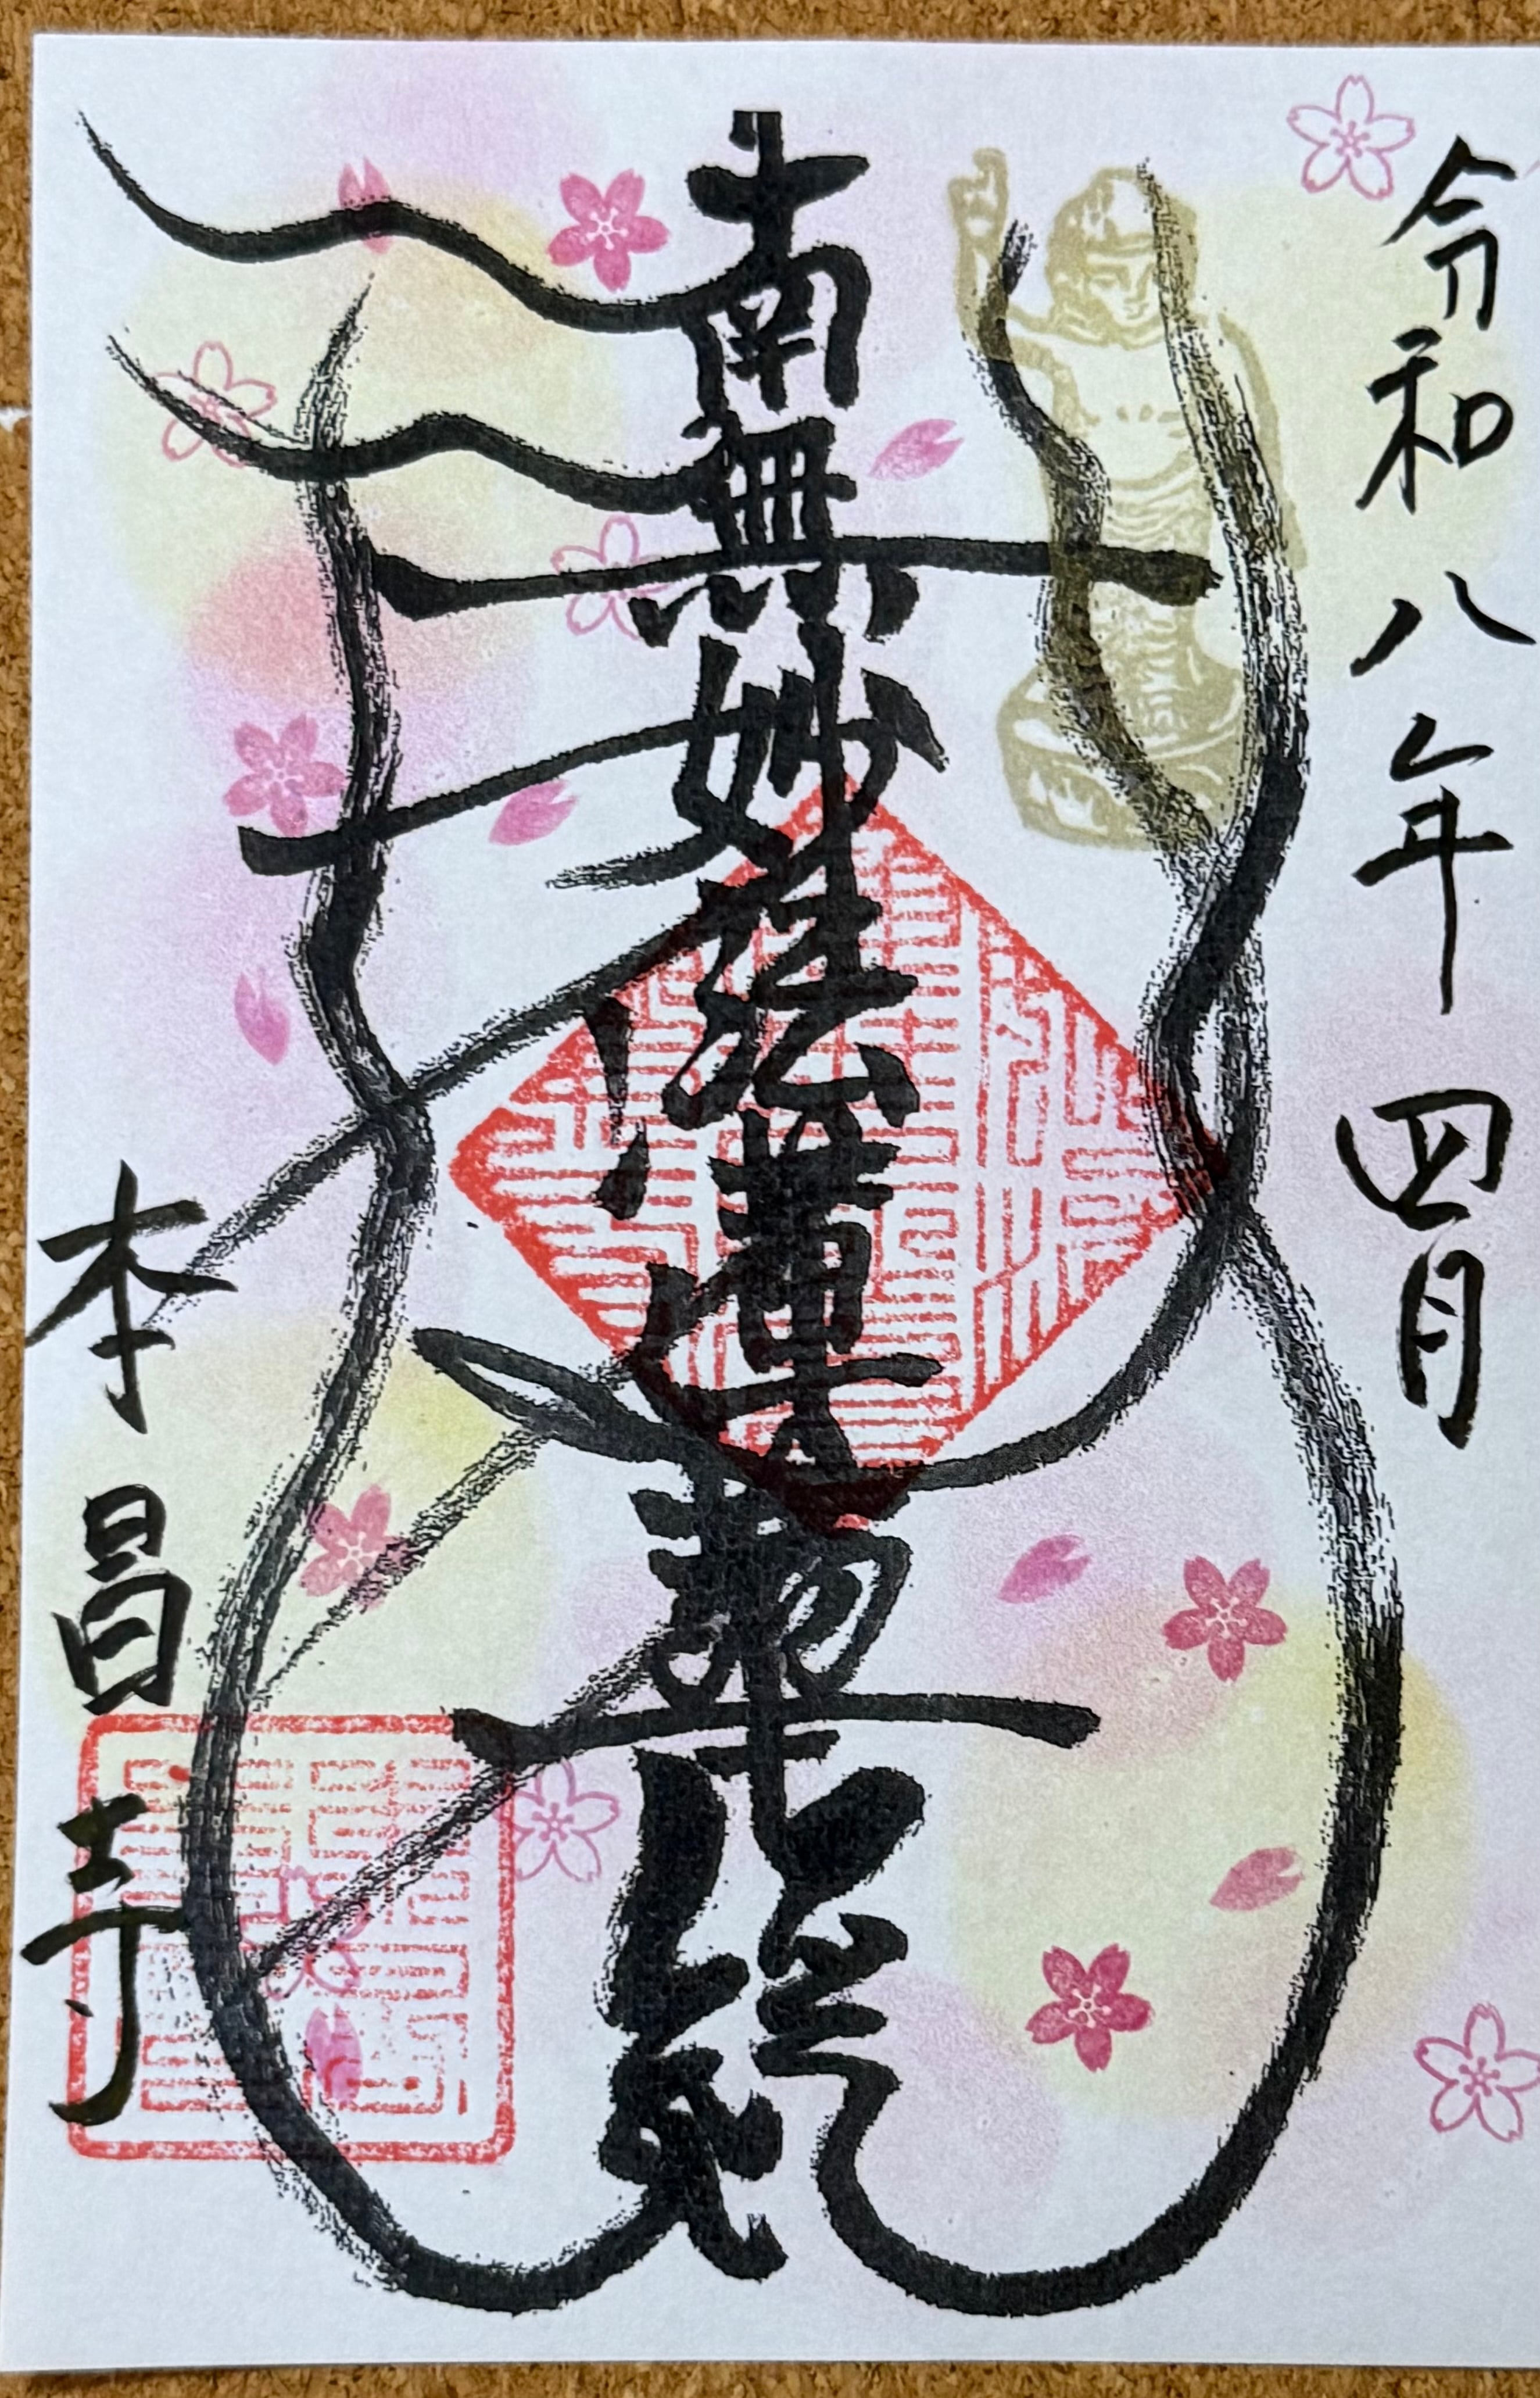 令和八年四月
南無妙法蓮華経
本昌寺